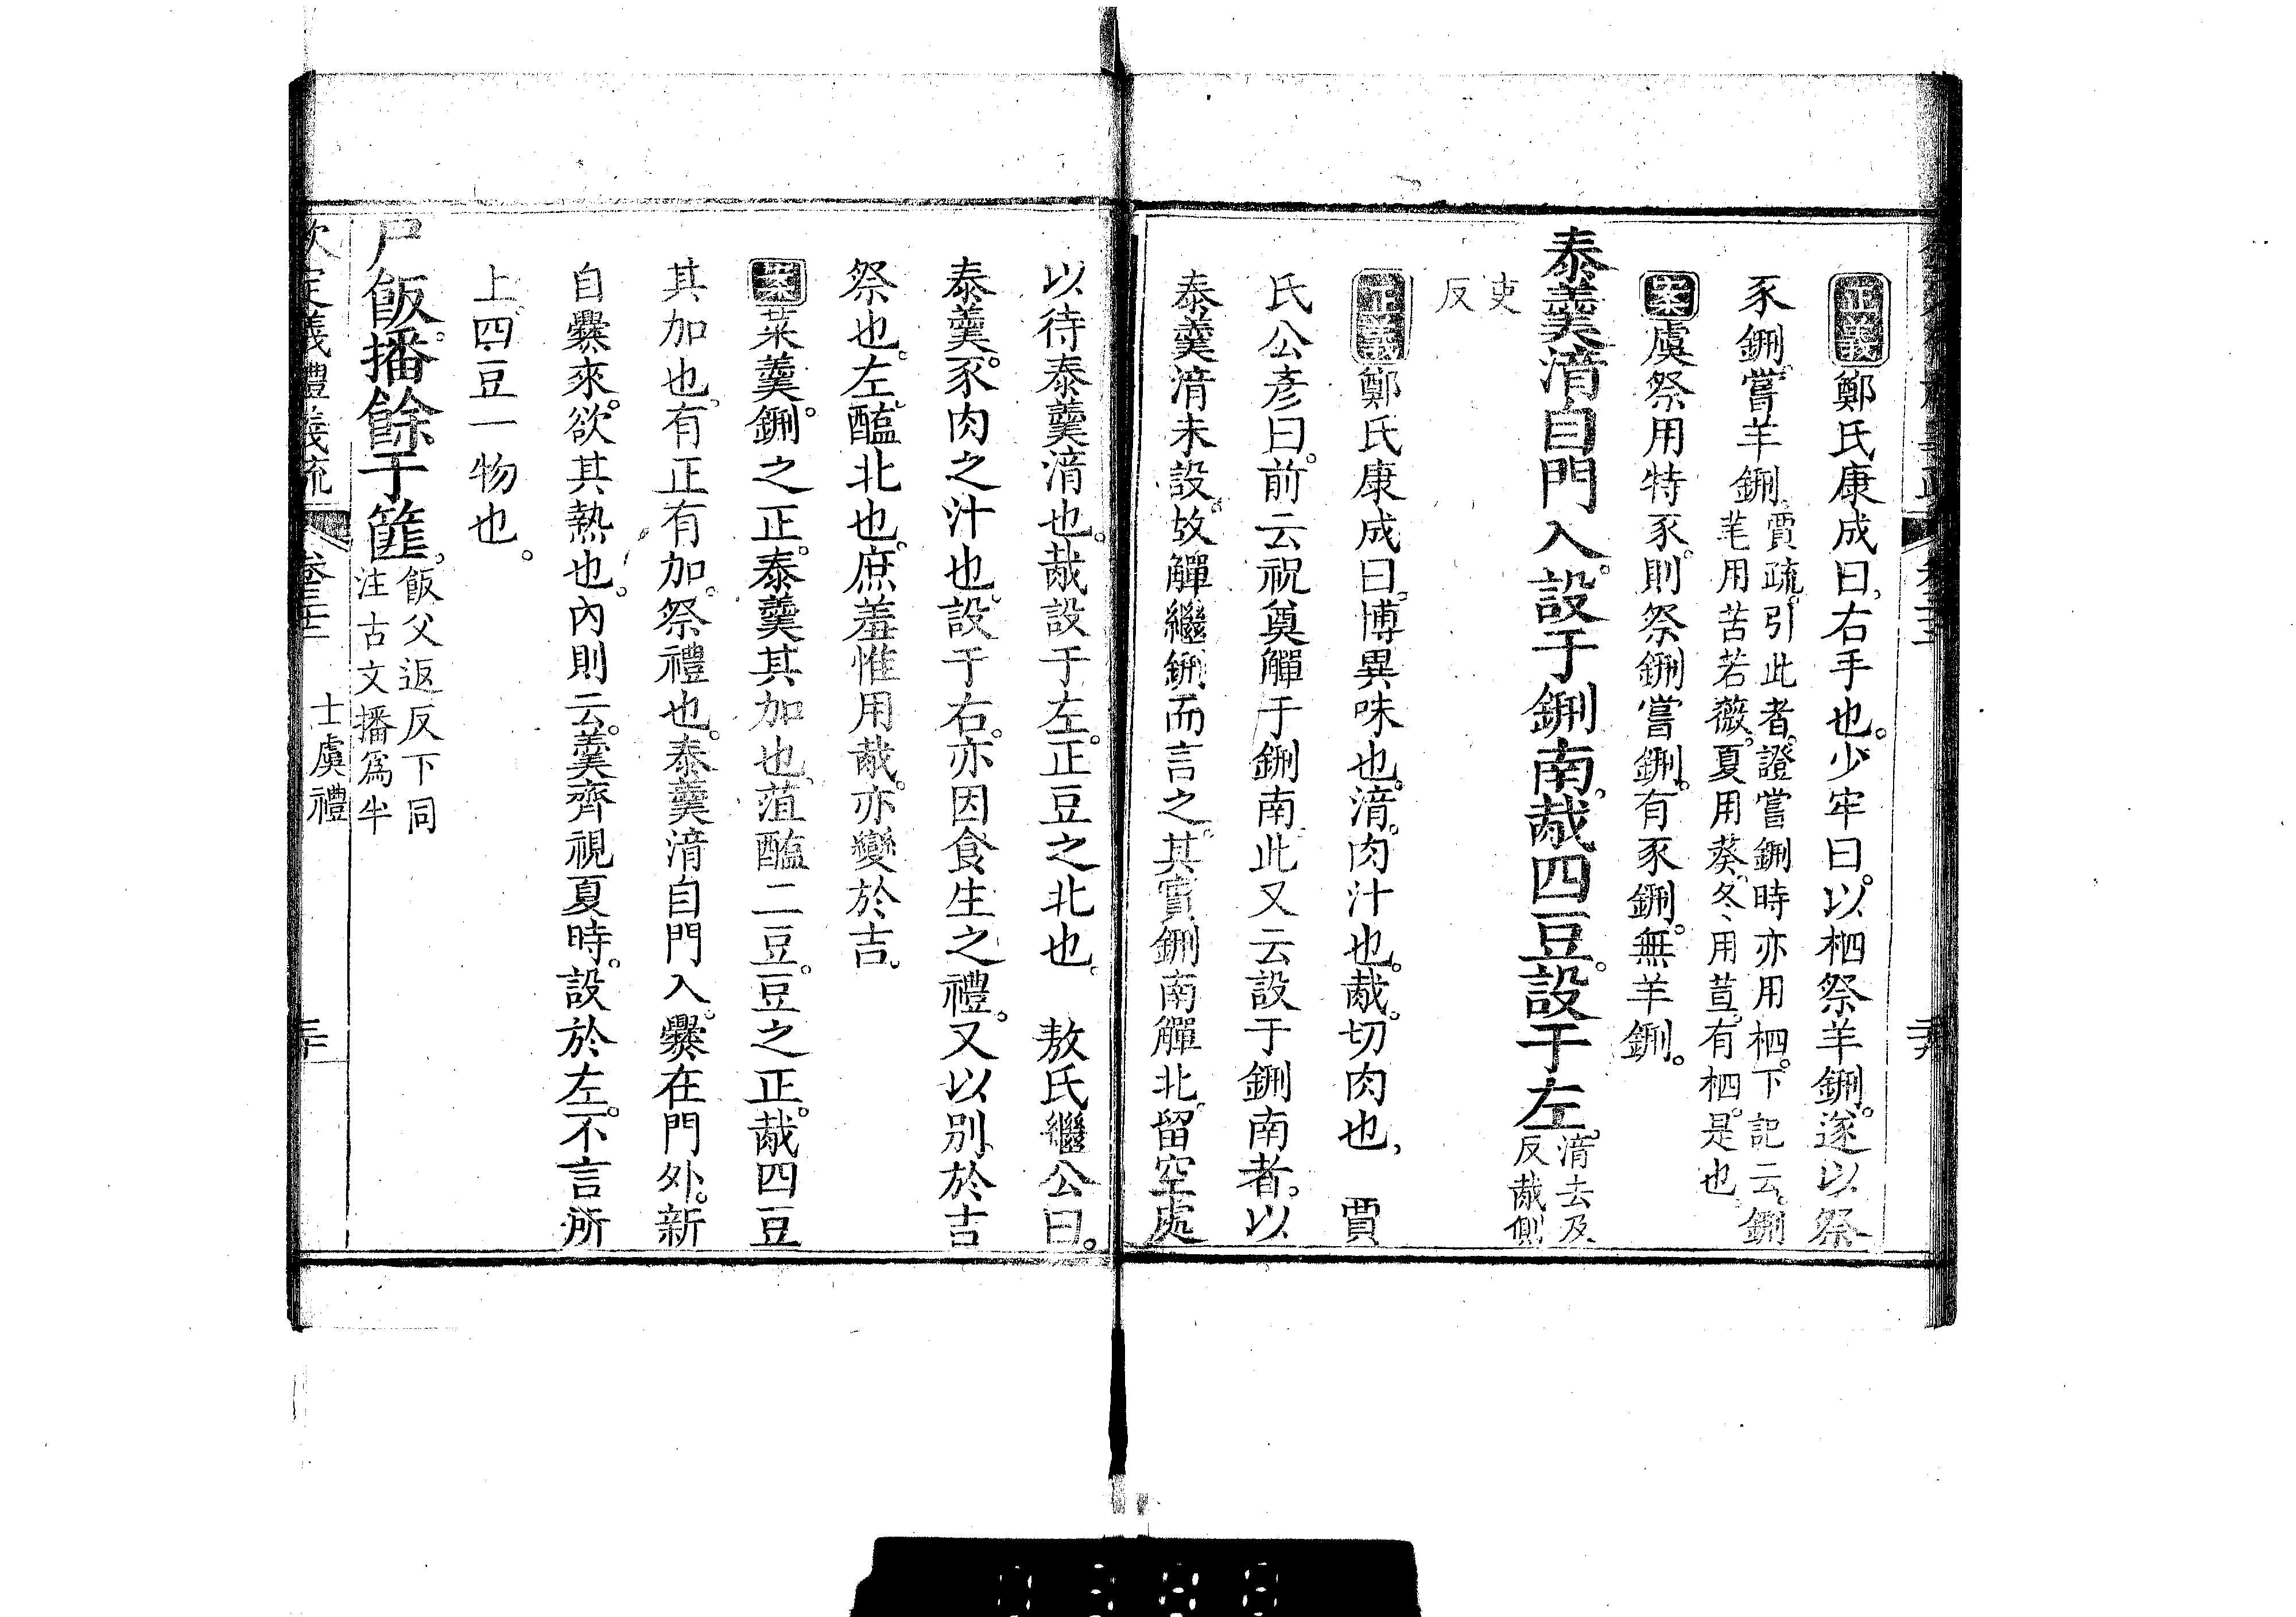 正義鄭氏康成曰右手也。少牢曰。以柶祭羊鉶。遂以祭
豕鉶。嘗羊鉶。賈疏。引此者。證嘗鉶時亦用柶。下記云。鉶
芼用苦若薇。夏用葵。冬用荁。有柶。是也。
案虞祭用特豕。則祭鉶嘗鉶。有豕鉶。無羊鉶。
泰羹湆自門入。設于鉶南。胾四豆。設于左。湆去及
反胾側
吏
反
正義鄭氏康成曰。博異味也。湆。肉汁也。胾。切肉也。 賈
氏公彥曰。前云祝奠觶于鉶南。此又云設于鉶南者。以
泰羹湆未設。故觶繼鉶而言之。其實鉶南觶北。留空處
以待泰羹湆也。胾設于左。正豆之北也。 敖氏繼公曰。
泰羹。豕肉之汁也。設于右。亦因食生之禮。又以別於吉
祭也。左。醢北也。庶羞惟用胾。亦變於吉。
案菜羹鉶之正。泰羹其加也。菹醢二豆。豆之正。胾四豆
其加也。有正有加。祭禮也。泰羹湆自門入。爨在門外。新
自爨來。欲其熱也。內則云。羹齊視夏時。設於左。不言所
上。四豆一物也。
尸飯。播餘于篚。飯父返反下同
注古文播爲半
欽定義禮義疏 卷三十三 士虞禮